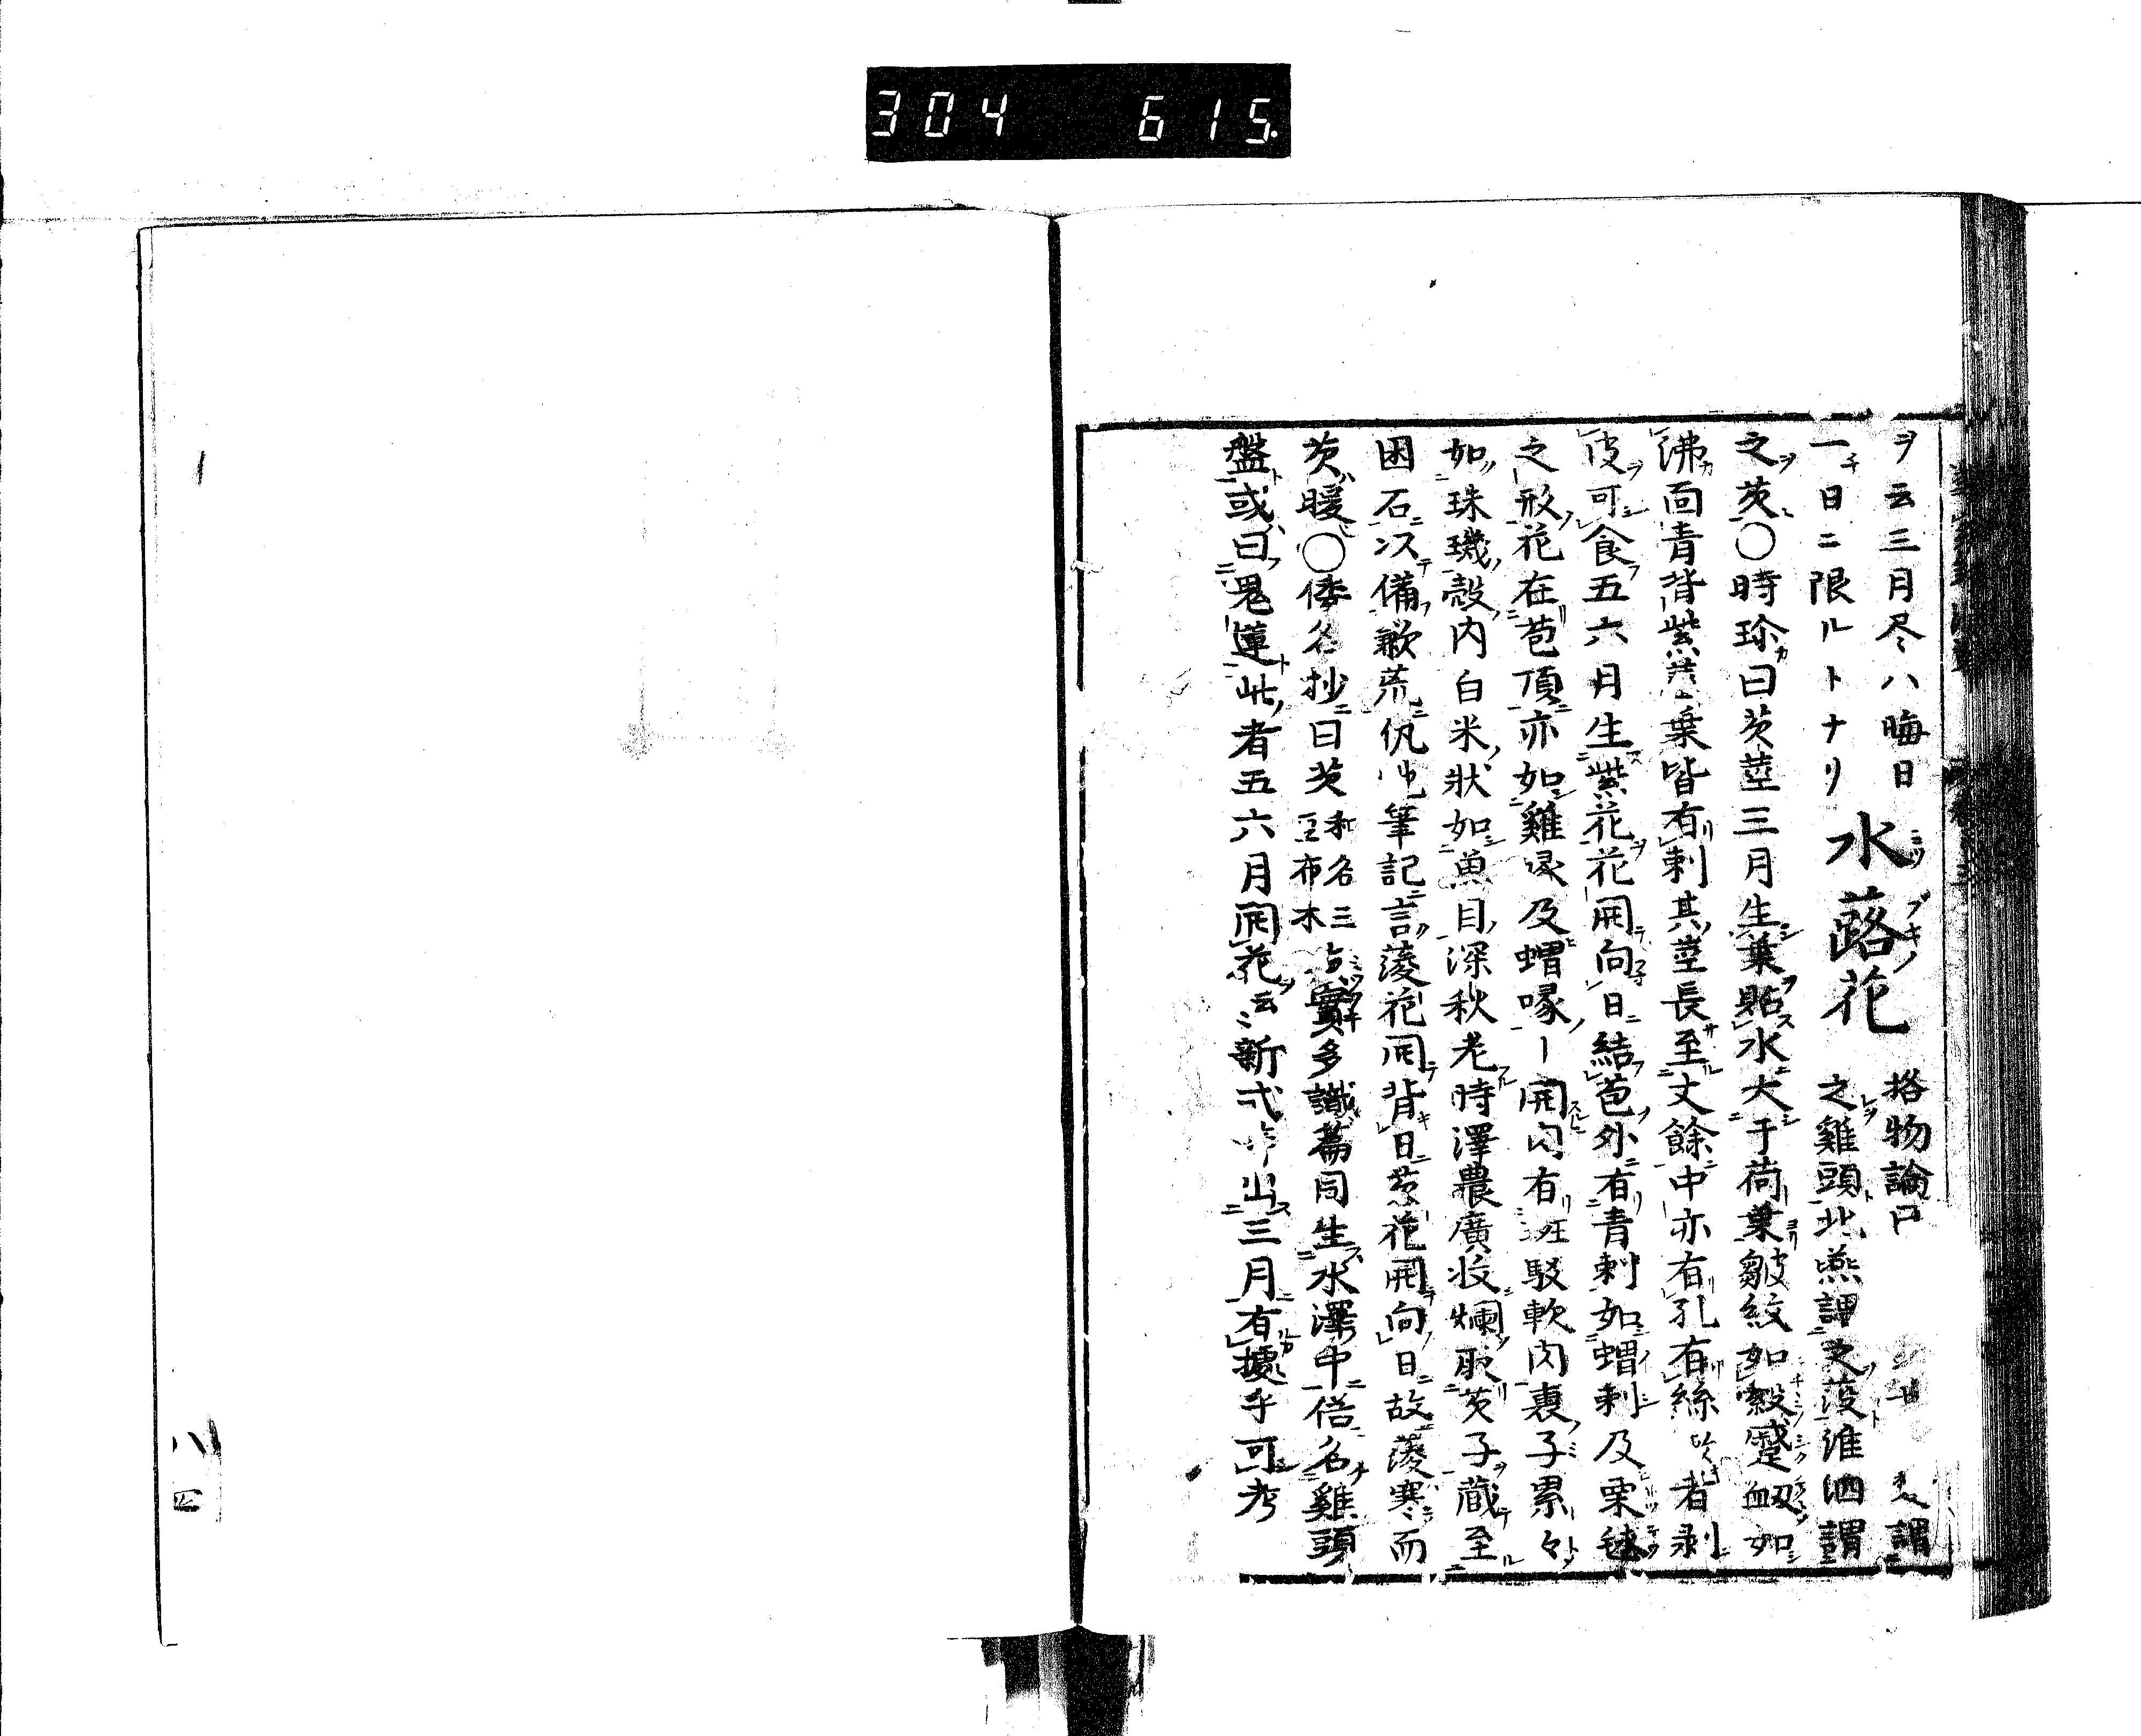 304 615.
ヲ云三月尽ハ晦日
一日ニ限ルトナリ
水蕗花
ミヅブキノ
格物論曰 謂
之雞頭北燕謂之䓈淮泗謂
之芡〇時珍曰芡莖三月生葉貼水大于荷葉皺紋如縠蹙衂如
沸面青背紫莖葉皆有刺其莖長至丈餘中亦有孔有絲 者剥
皮可食五六月生紫花花開向日結苞外有青刺如蝟刺及栗毬
之形花在苞頂亦如雞喙及蝟喙ー開内有斑駁軟肉裹子累々
如珠璣殻内白米狀如魚目深秋老時澤農廣收爛取芡子藏至
困石以備歉荒 筆記言菱花開背日芡花開向日故菱寒而
芡暖〇倭名抄曰芡和名三豆布木 多識篇同生水澤中倍名雞頭
盤或曰鬼蓮此者五六月開花云云新式 出三月有據乎可考
八四